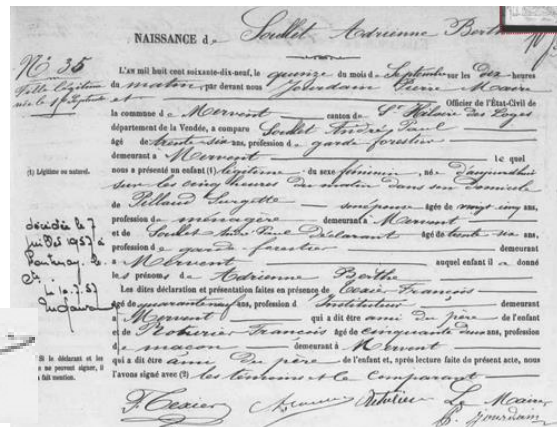 NAISSANCE de Soullet Adrienne Berthe
N° 35
Fille légitime
née le 15 Septembre
L'AN mil huit cent soixante-dix-neuf, le quinze du mois de Septembre sur les dix heures
du matin, par devant nous Jourdam Pierre Maire
et Officier de l'État-Civil de
la commune de Mervent canton de St Hilaire des Loges
département de la Vendée, a comparu Soullet André Paul
âgé de trente-six ans, profession de garde forestier
demeurant à Mervent lequel
(1) Légitime ou naturel.
nous a présenté un enfant (1) légitime du sexe féminin, né d'aujourd'hui
sur les cinq heures du matin dans son domicile
de son épouse âgée de vingt cinq ans,
profession de ménagère demeurant à Mervent
et de Soullet Déclarant âgé de trente six ans,
profession de garde-forestier demeurant
à Mervent auquel enfant il a donné
les prénoms de Adrienne Berthe
décédée le 7
juillet 1957 à
Fontenay le
Cte
10.7.57
Les dites déclaration et présentation faites en présence de Texier François
âgé de quarante neuf ans, profession d'Instituteur demeurant
à Mervent qui a dit être ami du père de l'enfant
et de François âgé de cinquante deux ans, profession
de maçon demeurant à Mervent
qui a dit être ami du père de l'enfant et, après lecture faite de présent acte, nous
l'avons signé avec (2) les témoins et le comparant
Si le déclarant et les
ne peuvent signer, il
fait mention.
F. Texier Le Maire
P. Jourdam